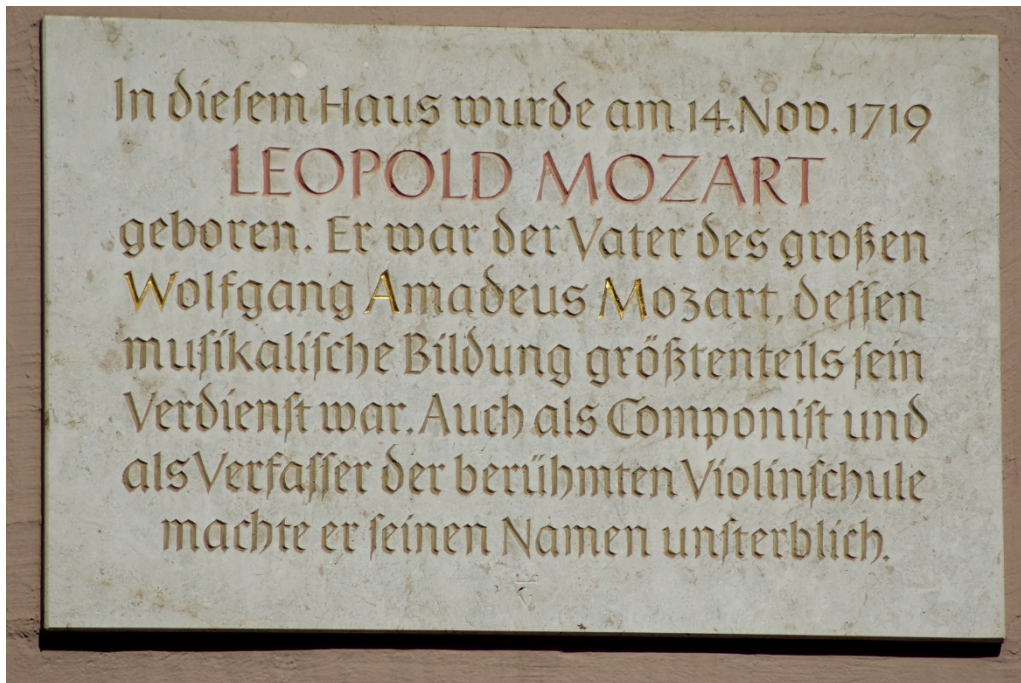 In dieſem Haus wurde am 14. Nov. 1719
LEOPOLD MOZART
geboren. Er war der Vater des großen
Wolfgang Amadeus Mozart, deſſen
muſikaliſche Bildung größtenteils ſein
Verdienſt war. Auch als Componiſt und
als Verfaſſer der berühmten Violinſchule
machte er ſeinen Namen unſterblich.